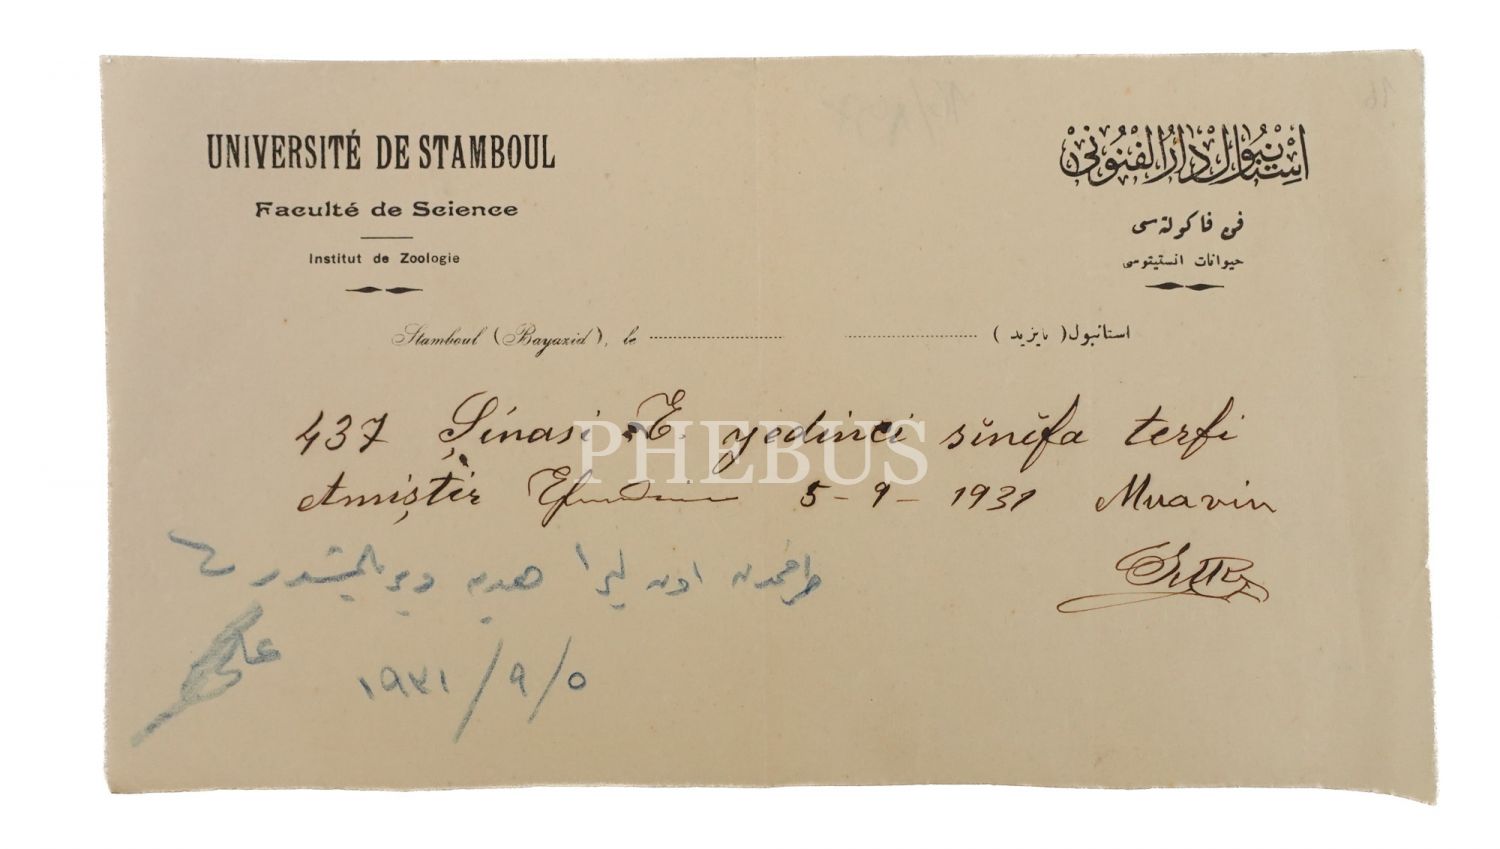 UNIVERSITÉ DE STAMBOUL
Faculté de Science
Institut de Zoologie
استانبول دار الفنونی
فن فاكولته سی
حیوانات انستیتوسی
Stamboul (Bayazid), le
استانبول ( بایزید )
437 Şinasi E. yedinci sĭnĭfa terfi
etmiştir Efendim 5-9-1931 Muavin
طرفمدن اون لیرا هدیه ویرلمشدر
علی
٥/٩/١٩٣١
PHEBUS